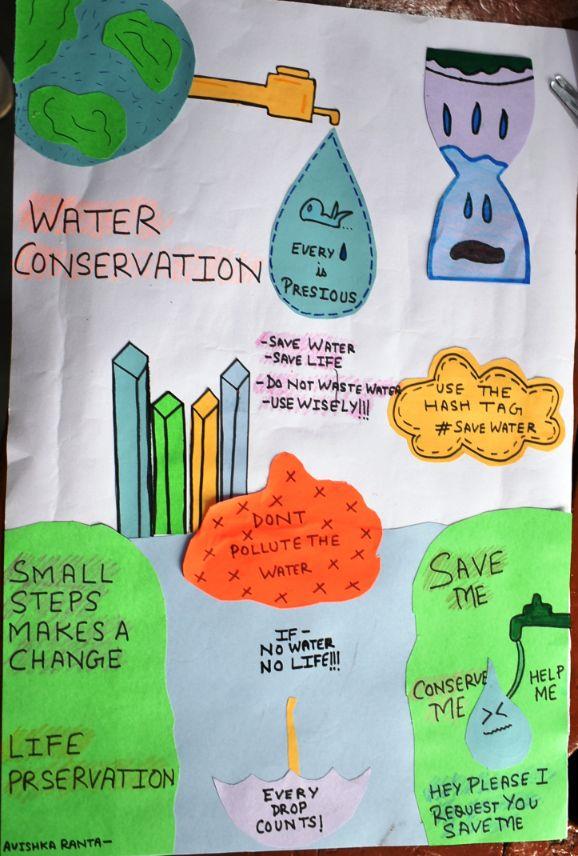 WATER
CONSERVATION
EVERY
is
PRESIOUS
-SAVE WATER
-SAVE LIFE
-DO NOT WASTE WATER
-USE WISELY!!!
USE THE
HASH TAG
#SAVE WATER
DONT
POLLUTE THE
WATER
SMALL
STEPS
MAKES A
CHANGE
IF-
NO WATER
NO LIFE!!!
SAVE
ME
CONSERVE
ME
HELP
ME
LIFE
PRSERVATION
EVERY
DROP
COUNTS!
HEY PLEASE I
REQUEST YOU
SAVE ME
AVISHKA RANTA-